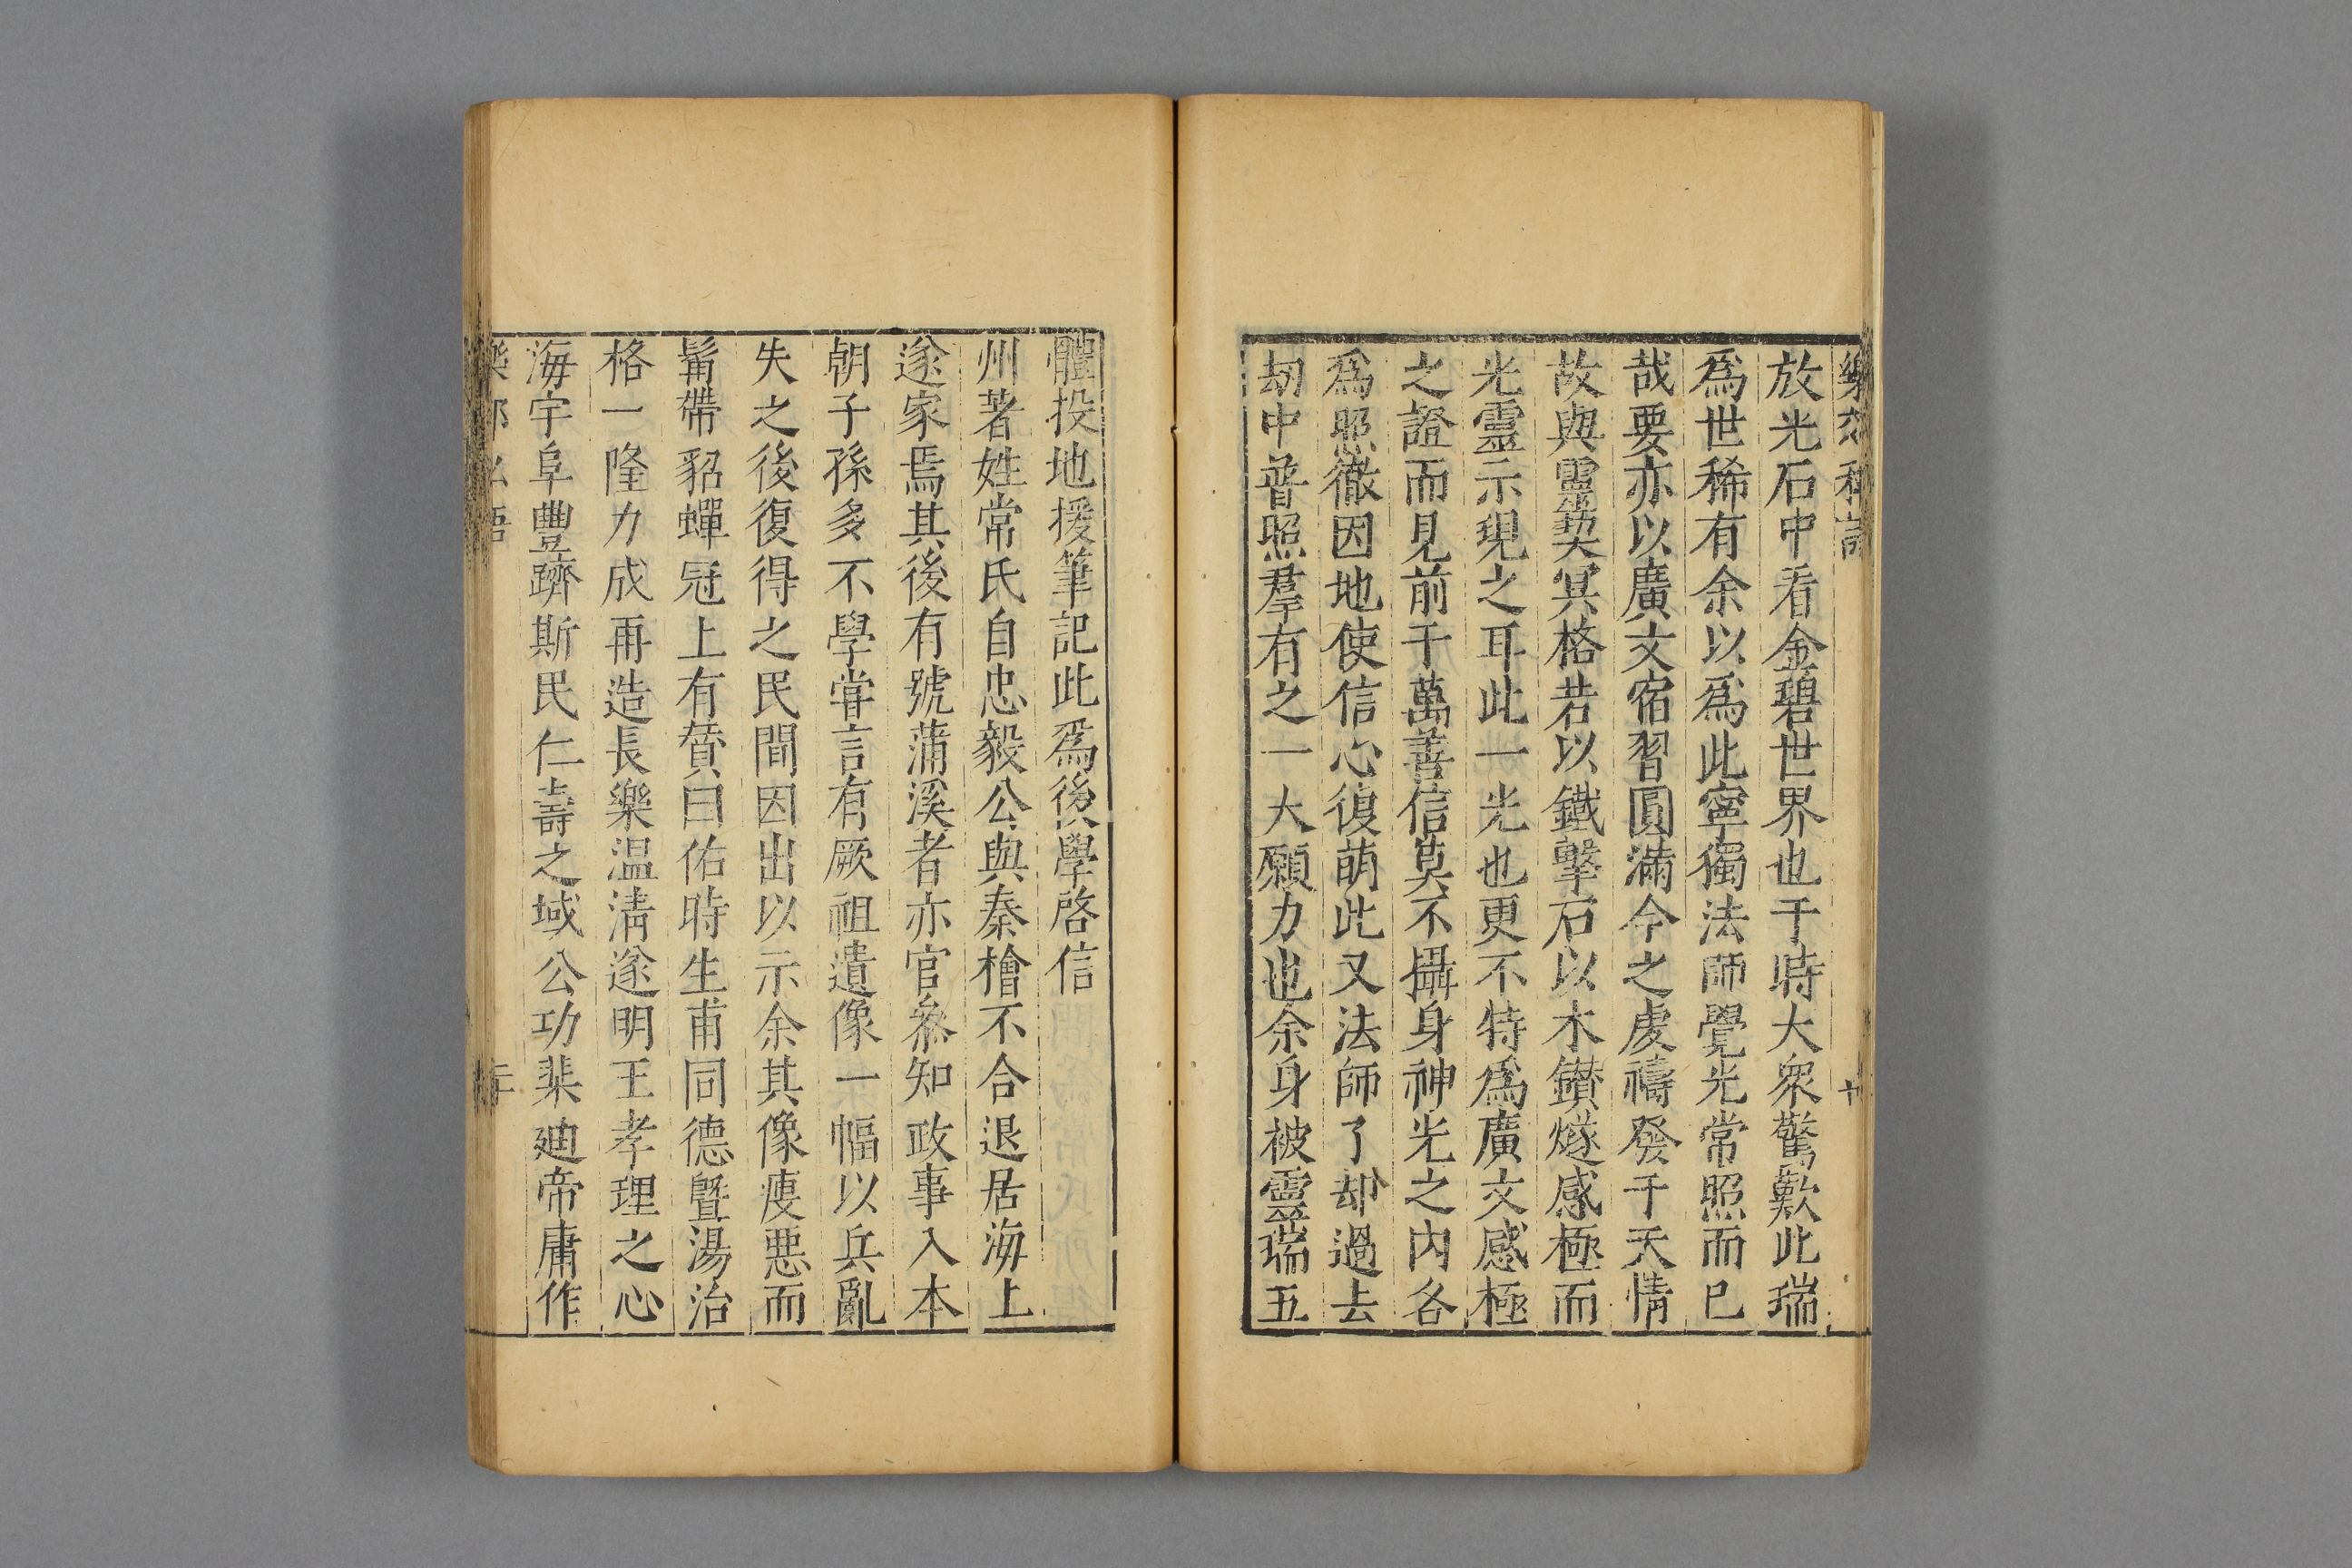 樂郊私語
十
放光石中看金碧世界也于時大衆驚歎此瑞
爲世稀有余以爲此寧獨法師覺光常照而已
哉要亦以廣文宿習圓滿今之虔禱發于天情
故與靈契冥格若以鐵擊石以木鑚燧感極而
光靈示現之耳此一光也更不特爲廣文感極
之證而見前千萬善信莫不攝身神光之內各
爲照徹因地使信心復萌此又法師了却過去
劫中普照羣有之一大願力也余身被靈瑞五
體投地援筆記此爲後學啓信
州著姓常氏自忠毅公與秦檜不合退居海上
遂家焉其後有號蒲溪者亦官叅知政事入本
朝子孫多不學甞言有厥祖遺像一幅以兵亂
失之後復得之民間因出以示余其像痩悪而
髯帶貂蟬冠上有贊曰佑時生甫同德曁湯治
格一隆力成再造長樂温凊遂明王孝理之心
海宇阜豐躋斯民仁壽之域公功棐廸帝庸作
樂郊私語